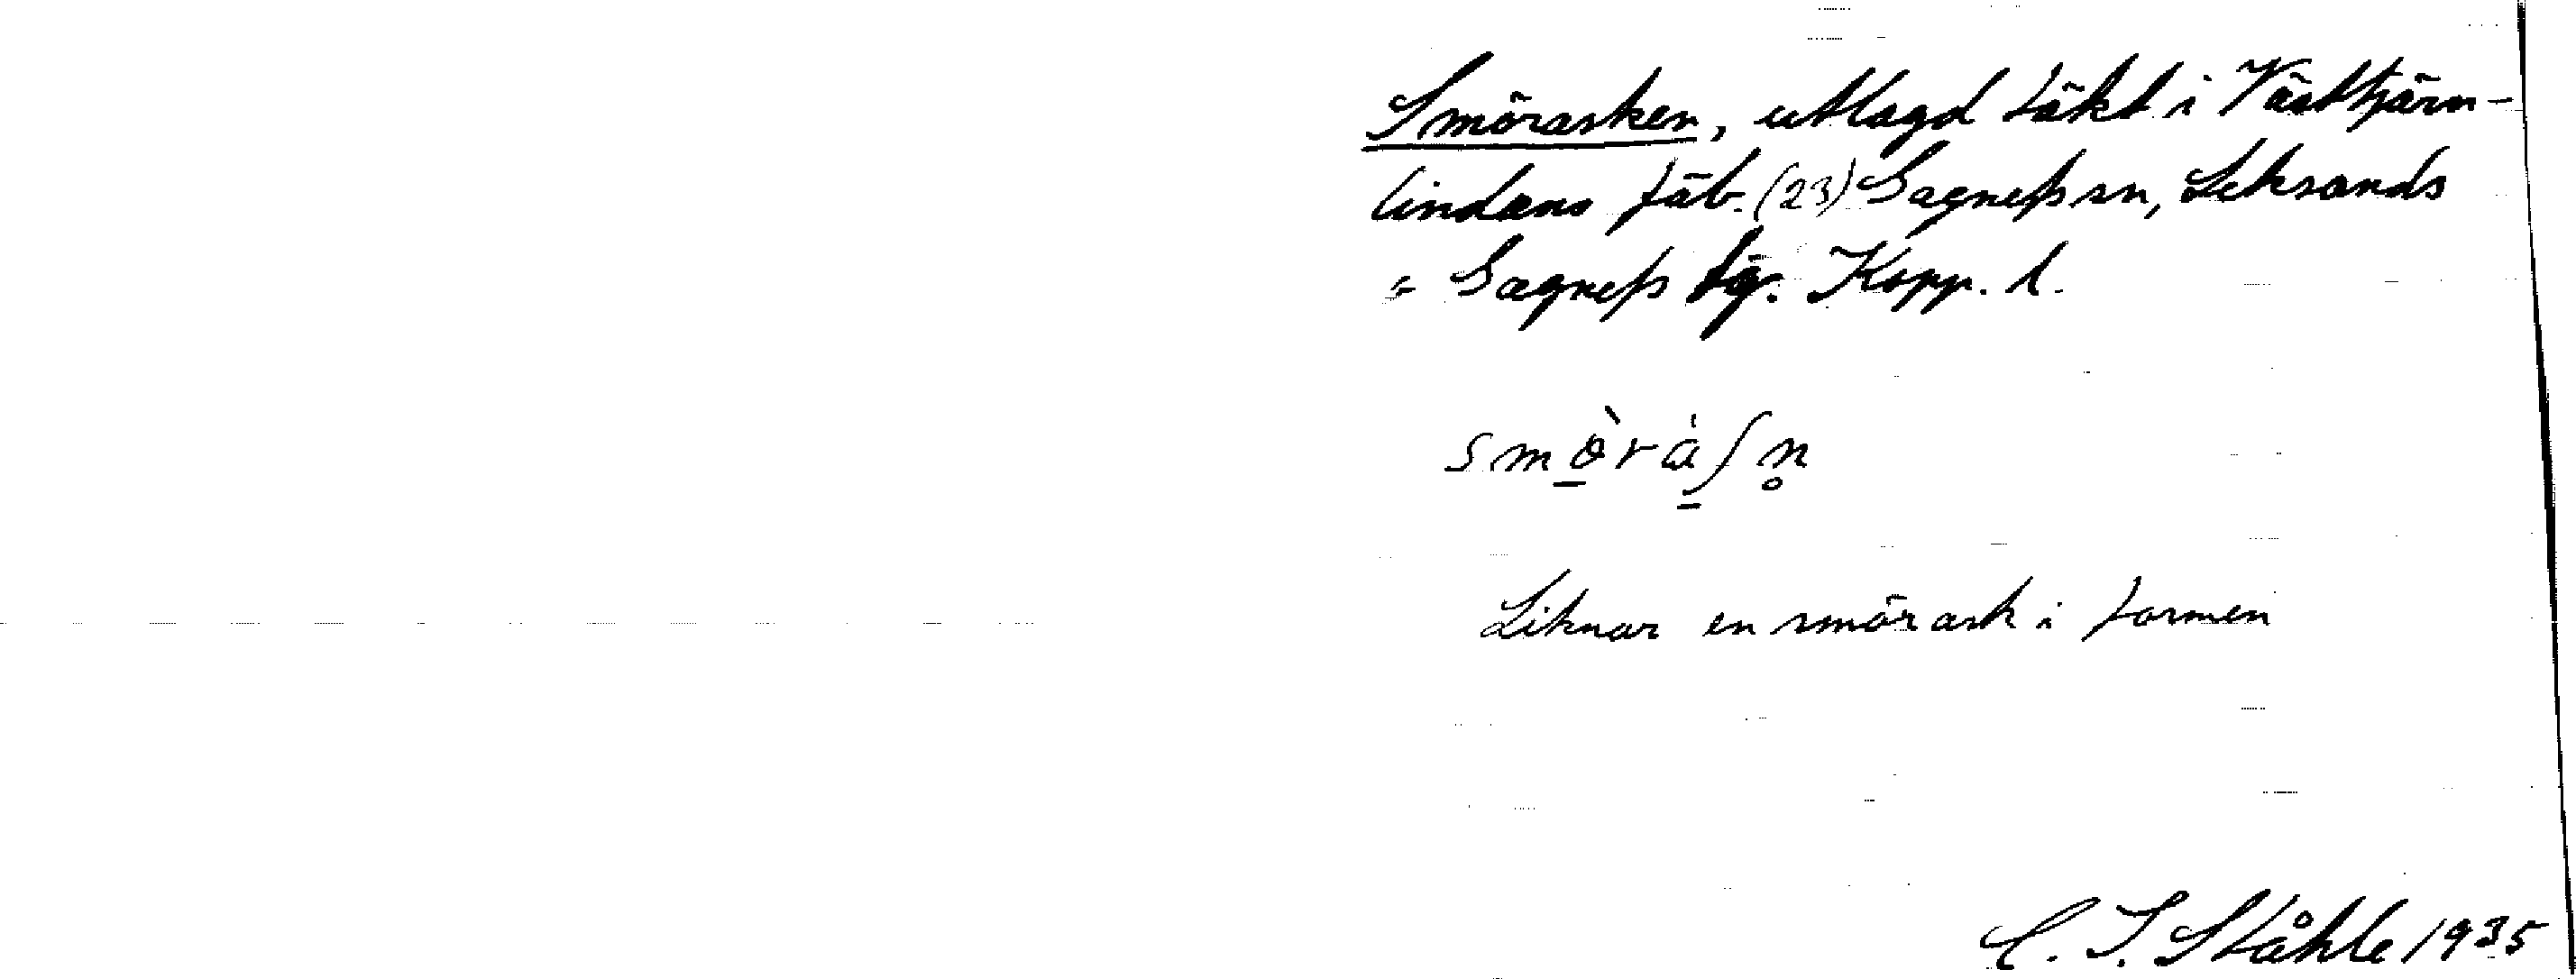 Smörasken, utlagd täkt i Västtjärn-
lindans fäb. (23) Gagnefs sn, Leksands
o Gagnefs tg. Kopp. l.
smö̀ràʃn̥
Liknar en smörask i formen
C. I. Ståhle 1935